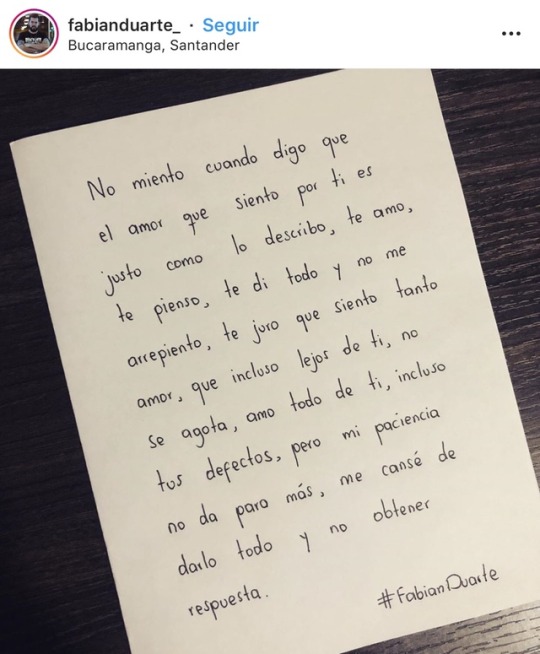 fabianduarte_ · Seguir
Bucaramanga, Santander
No miento cuando digo que
el amor que siento por ti es
justo como lo describo, te amo,
te pienso, te di todo y no me
arrepiento, te juro que siento tanto
amor, que incluso lejos de ti, no
se agota, amo todo de ti, incluso
tus defectos, pero mi paciencia
no da para más, me cansé de
darlo todo y no obtener
respuesta.
#FabianDuarte